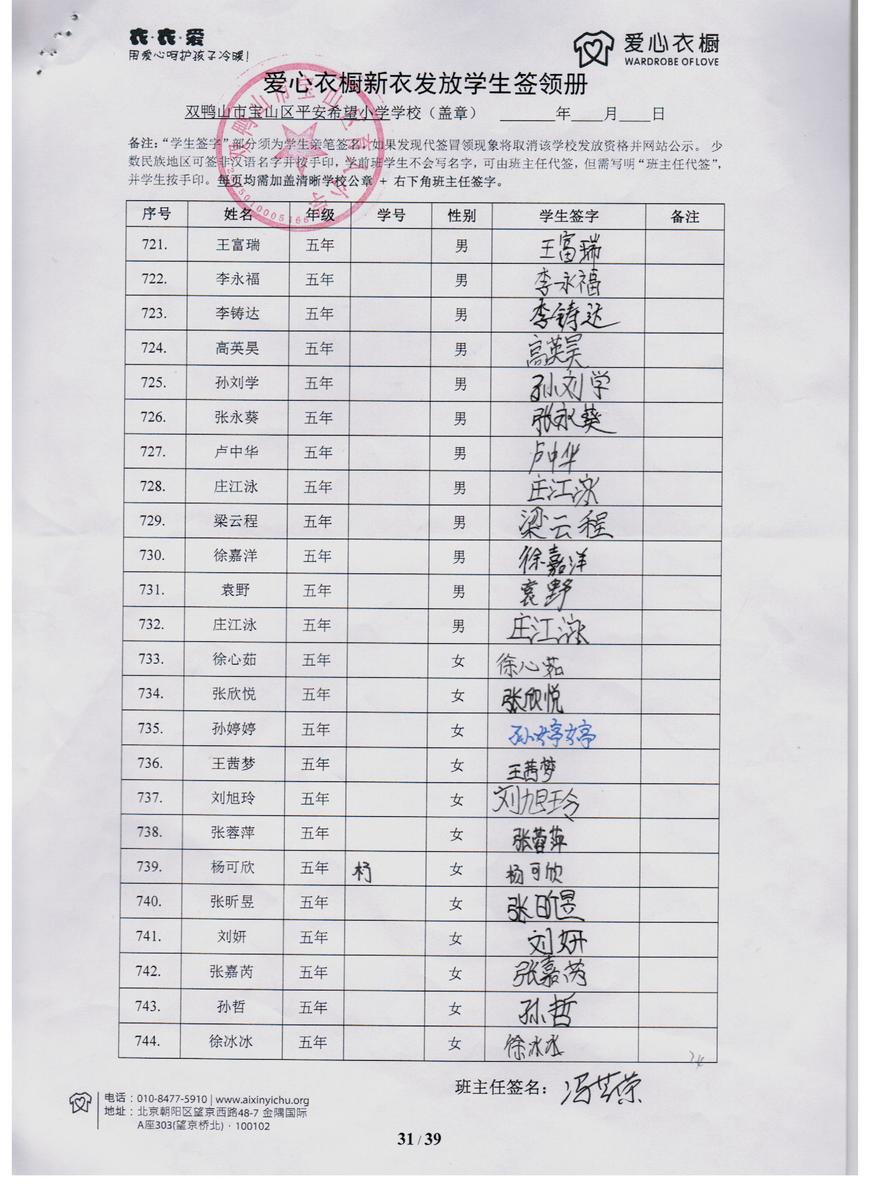 衣·衣·爱
用爱心呵护孩子冷暖!
爱心衣橱
WARDROBE OF LOVE
爱心衣橱新衣发放学生签领册
双鸭山市宝山区平安希望小学学校（盖章） ______年____月____日
备注:“学生签字”部分须为学生亲笔签名,如果发现代签冒领现象将取消该学校发放资格并网站公示。 少
数民族地区可签非汉语名字并按手印,学前班学生不会写名字,可由班主任代签,但需写明“班主任代签”,
并学生按手印。每页均需加盖清晰学校公章 + 右下角班主任签字。
序号 姓名 年级 学号 性别 学生签字 备注
721. 王富瑞 五年 男 王富瑞
722. 李永福 五年 男 李永福
723. 李铸达 五年 男 李铸达
724. 高英昊 五年 男 高英昊
725. 孙刘学 五年 男 孙刘学
726. 张永葵 五年 男 张永葵
727. 卢中华 五年 男 卢中华
728. 庄江泳 五年 男 庄江泳
729. 梁云程 五年 男 梁云程
730. 徐嘉洋 五年 男 徐嘉洋
731. 袁野 五年 男 袁野
732. 庄江泳 五年 男 庄江泳
733. 徐心茹 五年 女 徐心茹
734. 张欣悦 五年 女 张欣悦
735. 孙婷婷 五年 女 孙婷婷
736. 王茜梦 五年 女 王茜梦
737. 刘旭玲 五年 女 刘旭玲
738. 张蓉萍 五年 女 张蓉萍
739. 杨可欣 五年 女 杨可欣
740. 张昕昱 五年 女 张昕昱
741. 刘妍 五年 女 刘妍
742. 张嘉芮 五年 女 张嘉芮
743. 孙哲 五年 女 孙哲
744. 徐冰冰 五年 女 徐冰冰
24
班主任签名:
电话：010-8477-5910 | www.aixinyichu.org
地址：北京朝阳区望京西路48-7 金隅国际
A座303(望京桥北)·100102
31 / 39